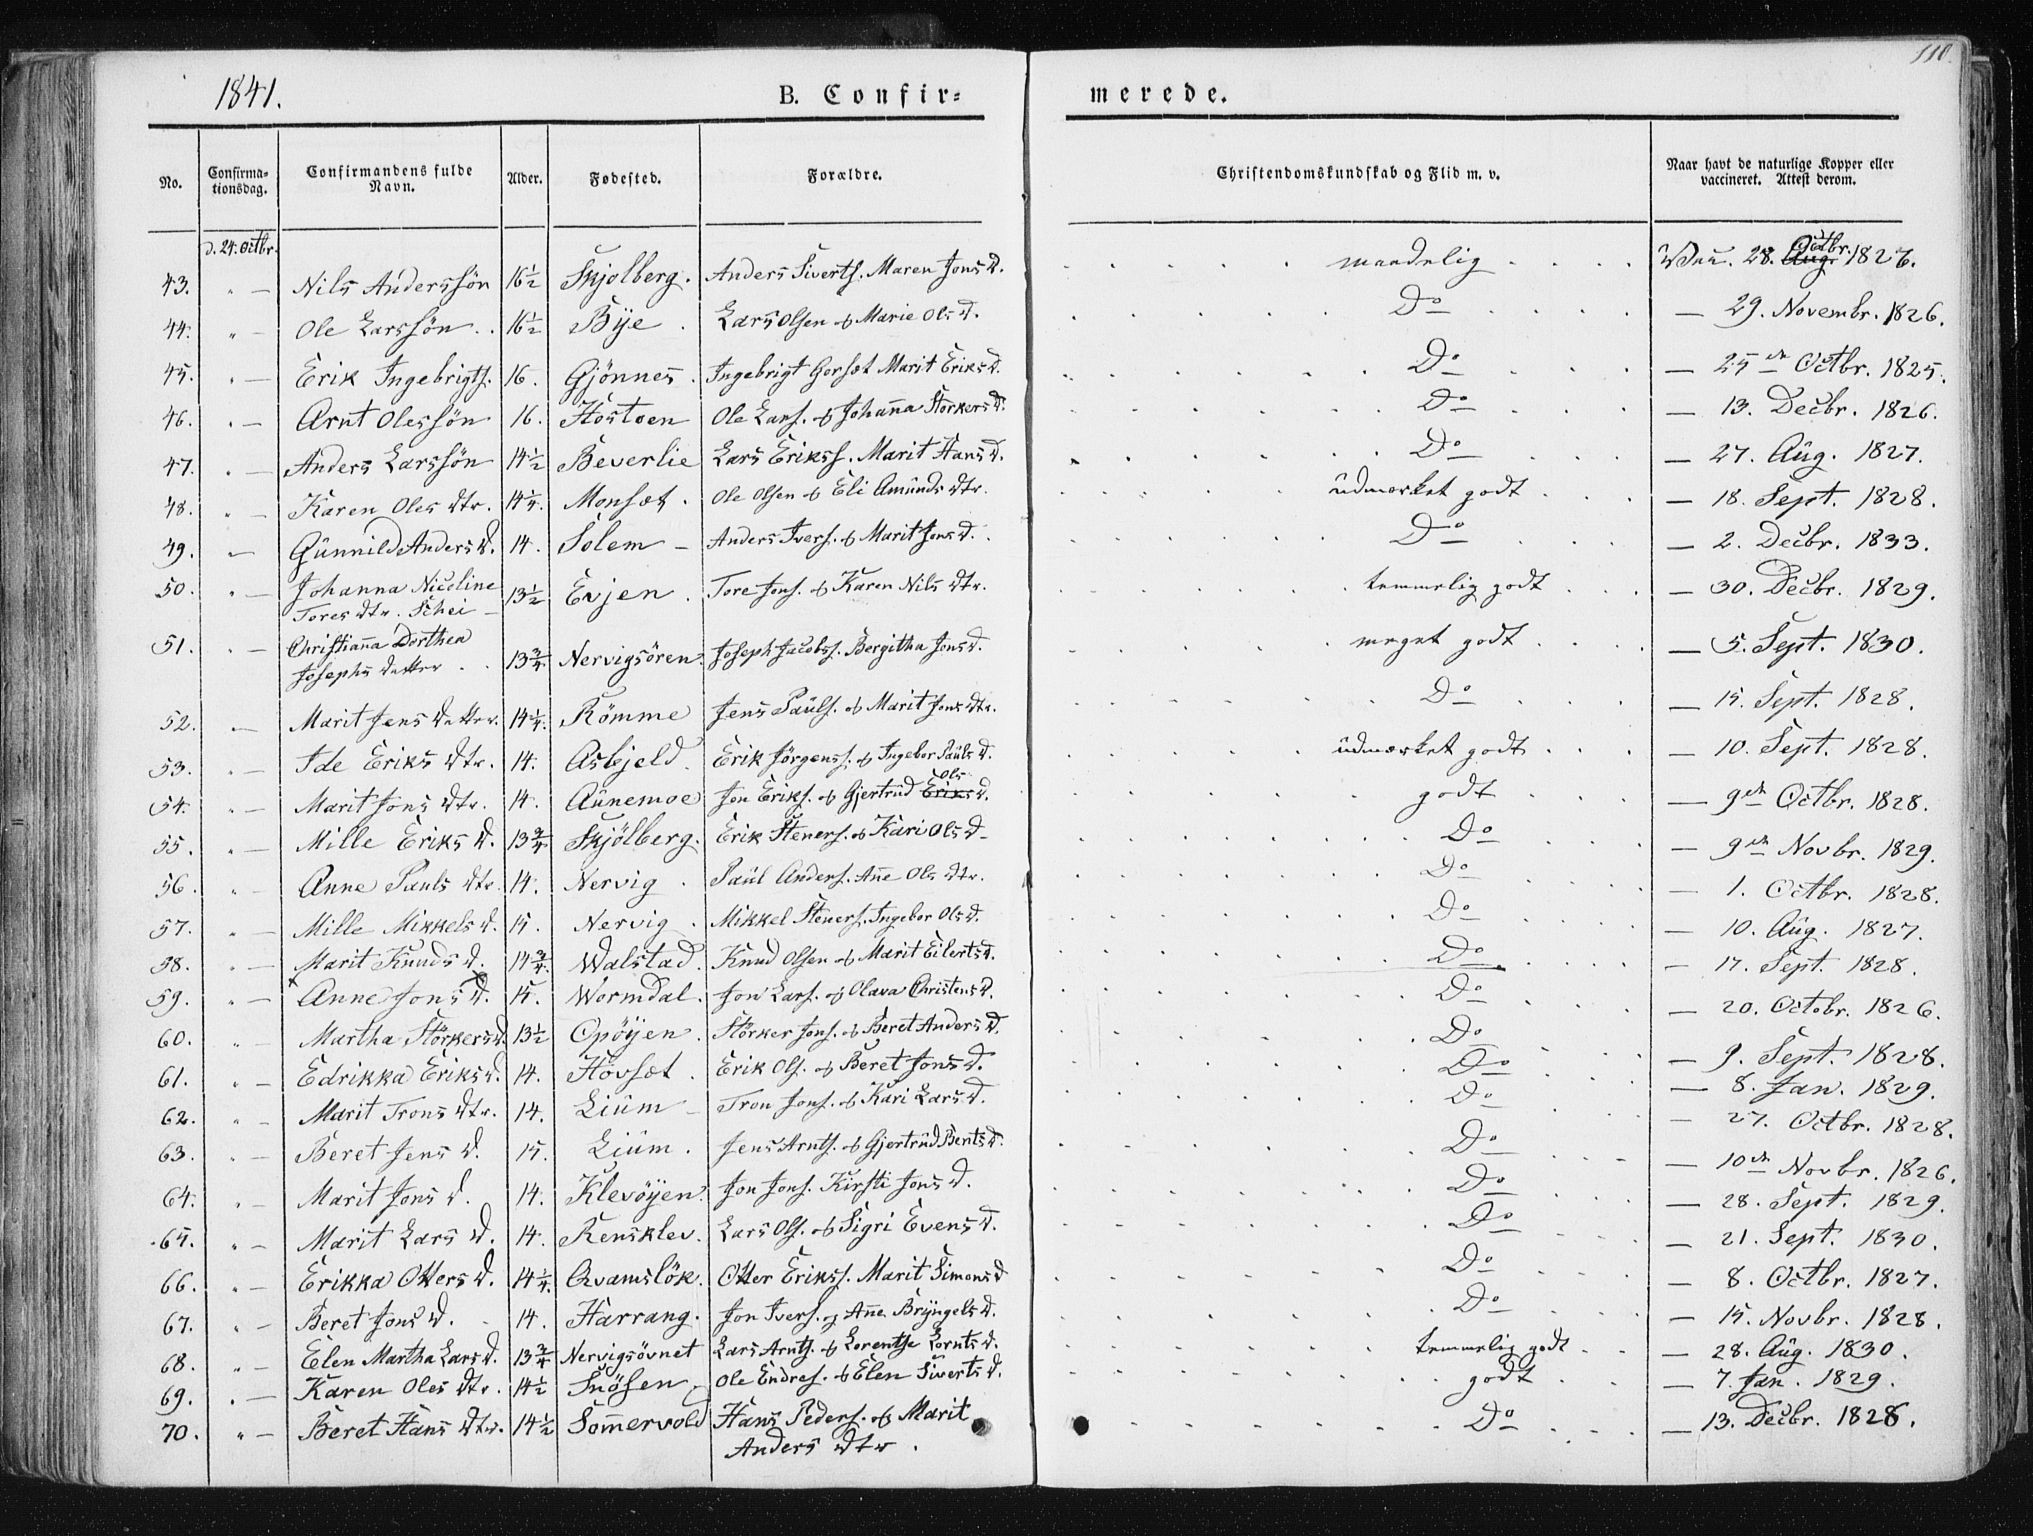 1841. B. Confir= merede. 110.
No. Confirma=tionsdag. Confirmandens fulde Navn. Alder. Fødested. Forældre. Christendomskundskab og Flid m. v. Naar havt de naturlige Kopper eller vaccineret. Attest derom.
d. 24. Octbr.
43. " — Nils Anderssön 16½ Skjolberg. Anders Siverts. Maren Jons D. maadelig 28. Aug. Octbr. 1826.
44. " — Ole Larssön 16½ Bye. Lars Olsen & Marie Ols D. Do — 29. Novembr. 1826.
45. " — Erik Ingebrigts. 16. Gjönnes. Ingebrigt Gorset Marit Eriks D. Do — 25de Octbr. 1825.
46. " — Arnt Olessön 16. Hostoen Ole Lars. & Johanna Störkers D. Do — 13. Decbr. 1826.
47. " — Anders Larssön 14½ Beverlie Lars Erikss. Marit Hans D. Do — 27. Aug. 1827.
48. " — Karen Oles Dtr. 14¼. Monset. Ole Olsen & Eli Amunds Dtr. udmærket godt — 18. Sept. 1828.
49. " — Gunnild Anders D. 14. Solem — Anders Ivers. & Marit Jons D. Do — 2. Decbr. 1833.
50. " — Johanna Nicoline Tores Dtr. Schei — 13½ Evjen. Tore Jons. & Karen Nils Dtr. temmelig godt — 30. Decbr. 1829.
51. " — Christianna Dorthea Josephs Datter 13¾ Nervigsören. Joseph Jacobs. Bergitha Jons D. meget godt — 5. Sept. 1830.
52. " — Marit Jens Datter. 14¼. Römme Jens Pauls. & Marit Jons Dtr. Do — 15. Sept. 1828.
53. " — Ide Eriks Dtr. 14. Asbjeld. Erik Jörgens. & Ingebor Pauls D. udmærket godt — 10. Sept. 1828.
54. " — Marit Jons Dtr. 14. Aunemoe Jon Eriks. & Gjertrud Eriks Ols D. godt — 9de Octbr. 1828.
55. " — Mille Eriks D. 13¾ Skjölberg. Erik Steners. & Kari Ols D — Do — 9de Novbr. 1829.
56. " — Anne Pauls Dtr. 14. Nervig. Paul Anders. Anne Ols Dtr. Do — 1. Octbr. 1828.
57. " — Mille Mikkels D. 15. Nervig. Mikkel Steners. Ingebor Ols D. Do — 10. Aug. 1827.
58. " — Marit Knuds D. 14¾. Walstad. Knud Olsen & Marit Eilerts D. Do — 17. Sept. 1828.
59. " — Anne Jons D. 15. Wormdal. Jon Lars. & Olava Christens D. Do — 20. Octobr. 1826.
60. " — Martha Störkers D. 13½ Opöyen. Störker Jons. & Beret Anders D. Do — 9. Sept. 1828.
61. " — Edrikka Eriks D. 14. Hovset. Erik Ols. & Beret Jons D. Do — 8. Jan. 1829.
62. " — Marit Trons Dtr. 14. Lium — Tron Jons. & Kari Lars D. Do — 27. Octbr. 1828.
63. " — Beret Jens D. 15. Lium. Jens Arnts. & Gjertrud Bents D. Do — 10de Novbr. 1826.
64. " — Marit Jons D. 14. Klevöyen. Jon Jons. Kirsti Jons D. Do — 28. Sept. 1829.
65. " — Marit Lars D. 14. Rensklev. Lars Ols. & Sigri Evens D. Do — 21. Sept. 1830.
66. " — Erikka Otters D. 14¼. Qvamslök. Otter Erikss. Marit Simons D Do — 8. Octbr. 1827.
67. " — Beret Jons D. 14. Harrang. Jon Ivers. og Anne Bryngels D. Do — 15. Novbr. 1828.
68. " — Elen Martha Lars D. 13¾ Nervigsövnet Lars Arnts. & Lorentse Lornts D. temmelig godt — 28. Aug. 1830.
69. " — Karen Oles Dtr. 14½ Snösen Ole Endres. & Elen Siverts D. godt — 7. Jan. 1829.
70. " — Beret Hans Dtr. 14½ Sommervold Hans Peders. & Marit Anders Dtr. Do — 13. Decbr. 1828.